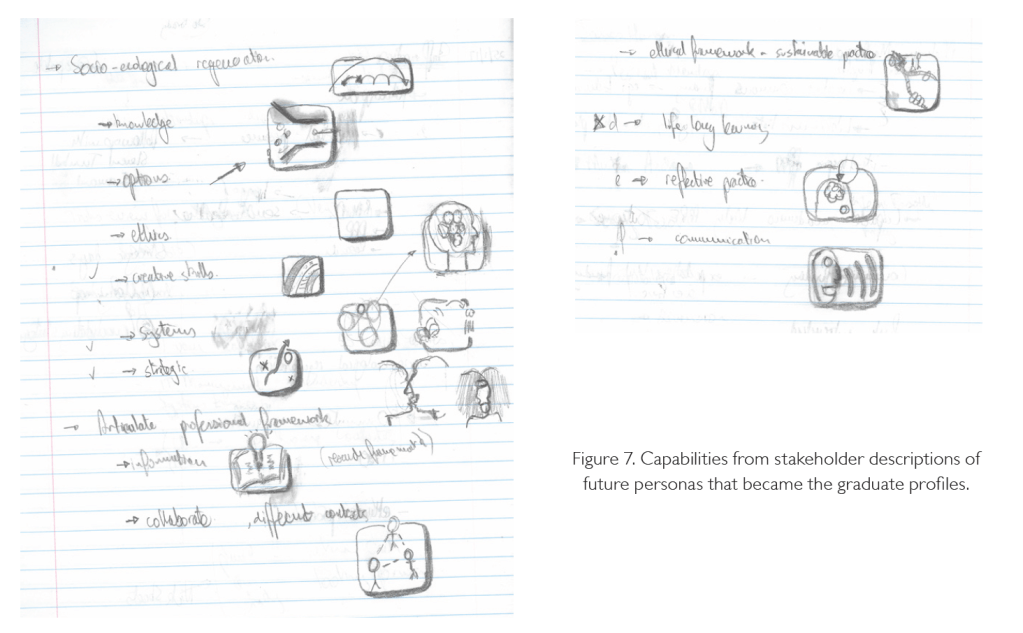 → Socio-ecological regeneration.
→ knowledge
→ options
→ ethics.
→ creative skills.
→ systems
→ strategic
→ Articulate professional framework
→ information (research framework)
→ collaborate , different contexts
→ ethical framework - sustainable practice.
d → life long learning
e → reflective practice.
f → communication
Figure 7. Capabilities from stakeholder descriptions of
future personas that became the graduate profiles.